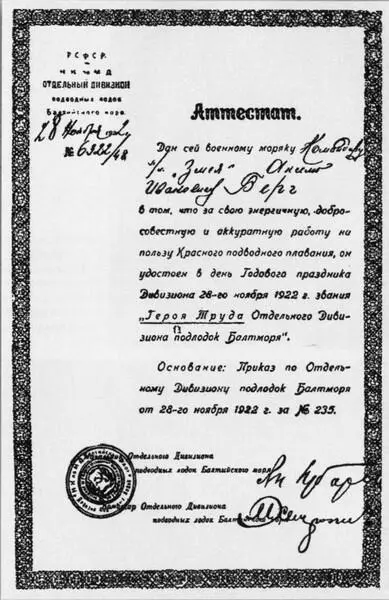 Р С Ф С Р.
Н К М Ф
ОТДЕЛЬНЫЙ ДИВИЗИОН
подводных лодок
Балтийского моря.
28 Ноября 1922
№ 6322/48
Аттестат.
Дан сей военному моряку Командиру
п/л. "Змея" Акселю
Ивановичу Берг
в том, что за свою энергичную, добро-
совестную и аккуратную работу на
пользу Красного подводного плавания, он
удостоен в день Годового праздника
Дивизиона 28-го ноября 1922 г. звания
„Героя Труда Отдельного Диви-
зиона подлодок Балтморя".
Основание: Приказ по Отдель-
ному Дивизиону подлодок Балтморя
от 28-го ноября 1922 г. за № 235.
Отдельного Дивизиона
подводных лодок Балтийского моря
Отдельного Дивизиона
подводных лодок